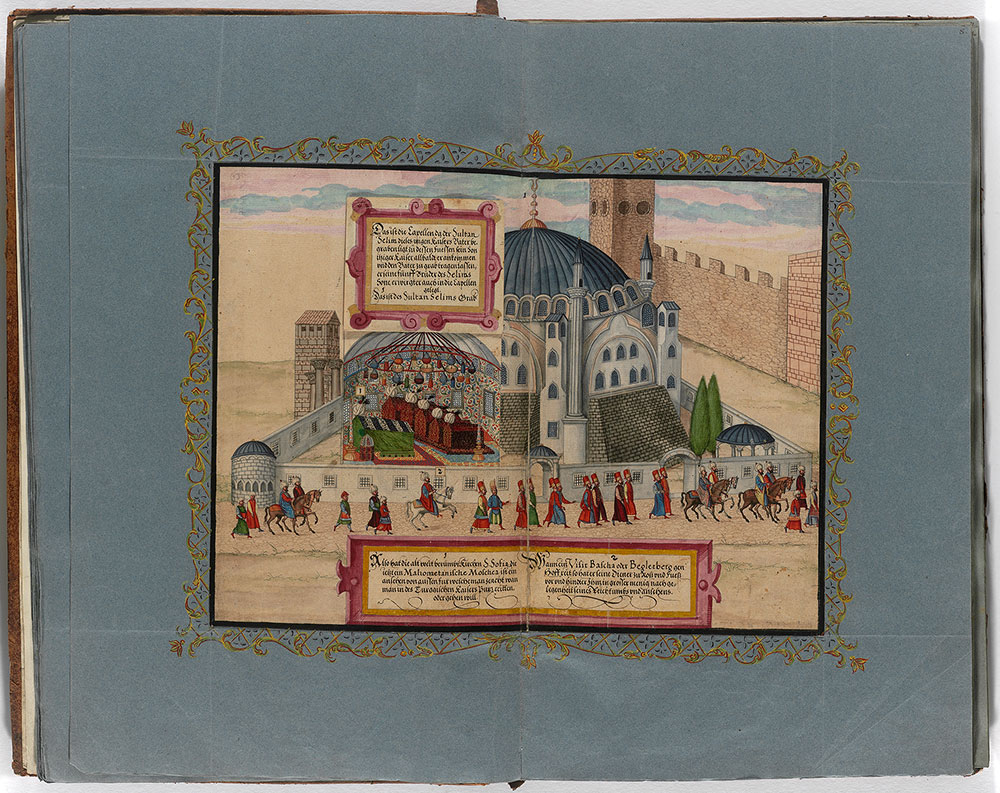 Das ist die Capellen da der Sultan
Selim dieses itzigen Kaisers Vater be-
graben ligt zu dessen fuessen sein Son
itziger Kaiser alls baldt er ankommen
und den Vater zu grab tragen lassen,
seine funff Brüder des Selims
Sone erwirgter auch in die Capellen
gelegt.
Das ist des Sultan Selims Grab
Also hat die alt weit berümbt Kirchen S. Sofia die
ietzt ein Mahometanische Moschea ist ein
ansehen von aussen fur welche man
man in des Turggischen Kaisers Burg reitten,
oder gehen will.
Wann ein Visir Bascha oder Beglerbeg gen
Hoff reit so hat er seine Diener zu Ross und Fuess
vor und hinder Ihm in grosser menig nach ge-
legenheit seines Reichtumbs und ansehens.